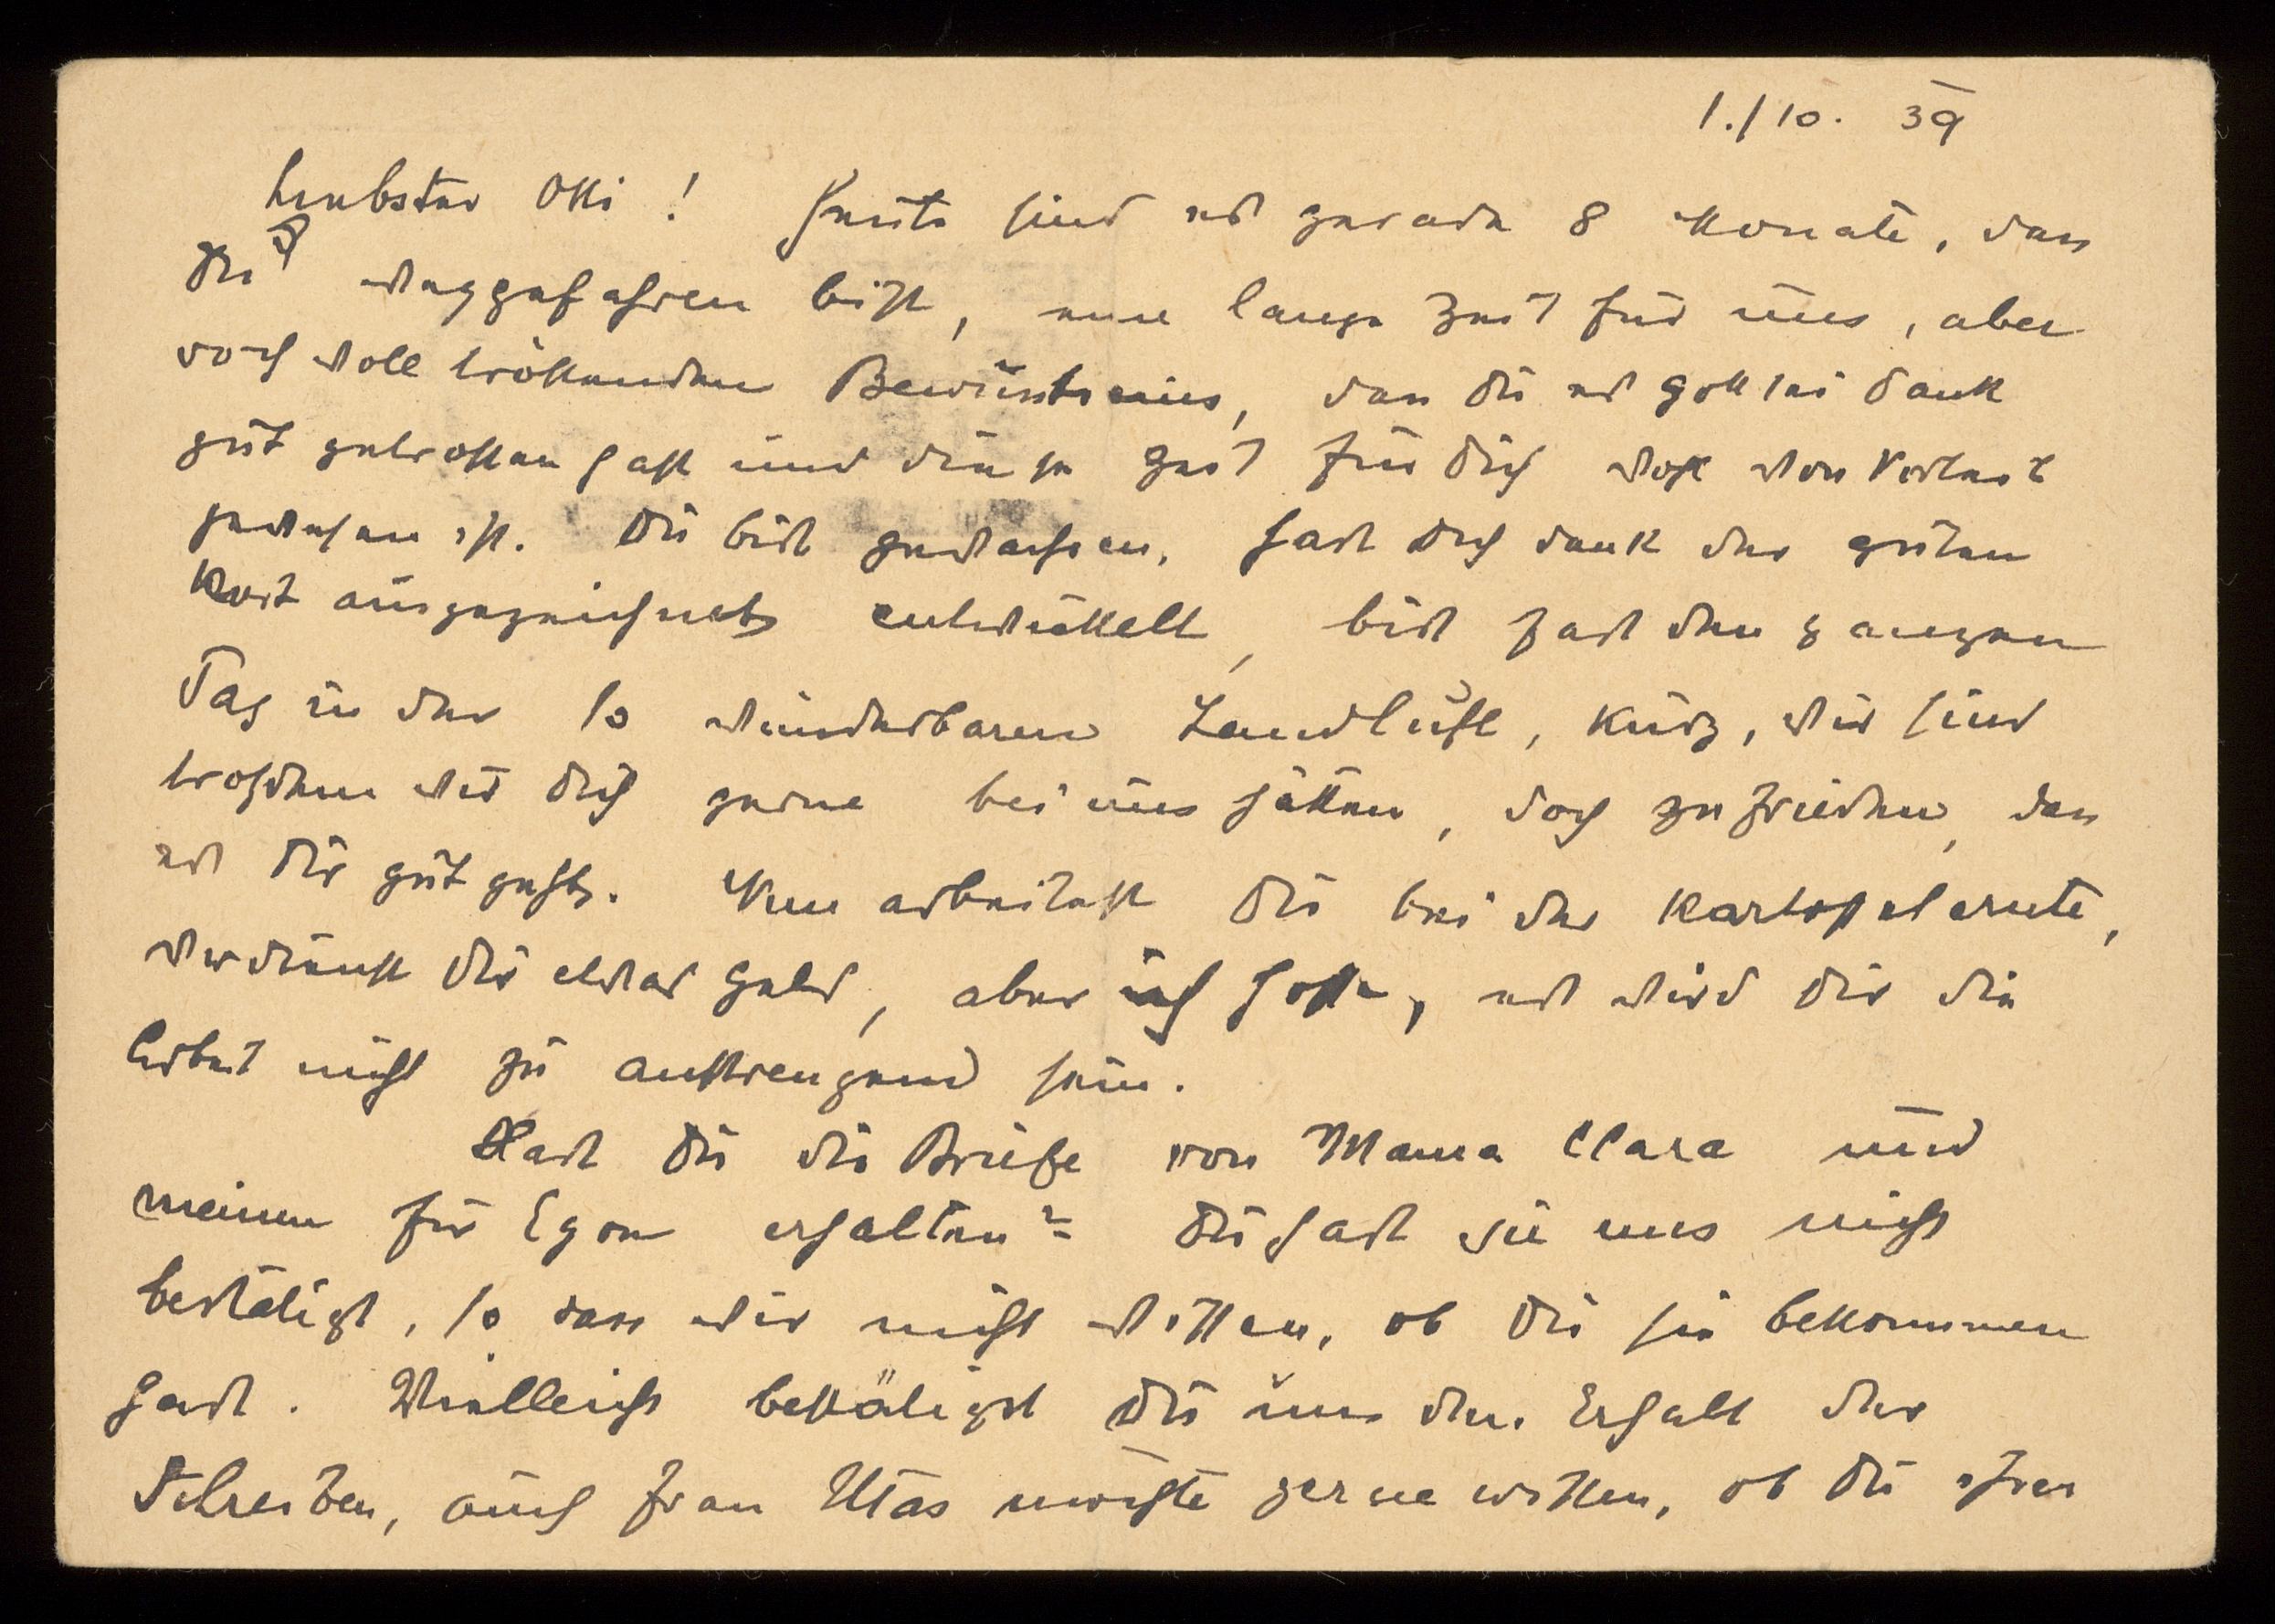 1./10. 39
Liebster Otti! Heute sind es gerade 8 Monate, dass
Du weggefahren bist, eine lange Zeit für uns, aber
doch voll tröstendem Bewusstseins, dass Du es Gott sei Dank
gut getroffen hast und diese Zeit für Dich wohl von Vorteil
gewesen ist. Du bist gewachsen, hast Dich dank der guten
Kost ausgezeichnet entwickelt, bist fast den ganzen
Tag in der so wunderbaren Landluft, kurz, wir sind
trotzdem wir Dich gerne bei uns hätten, doch zufrieden, dass
es Dir gut geht. Nun arbeitest Du bei der Kartoffelernte,
verdienst Dir etwas Geld, aber ich hoffe, es wird Dir die
Arbeit nicht zu anstrengend sein.
Hast Du die Briefe von Mama Clara und
meinen für Egon erhalten? Du hast sie uns nicht
bestätigt, so dass wir nicht wissen, ob Du sie bekommen
hast. Vielleicht bestätigst Du uns den Erhalt der
Schreiben, auch Frau Utas möchte gerne wissen, ob Du ihren